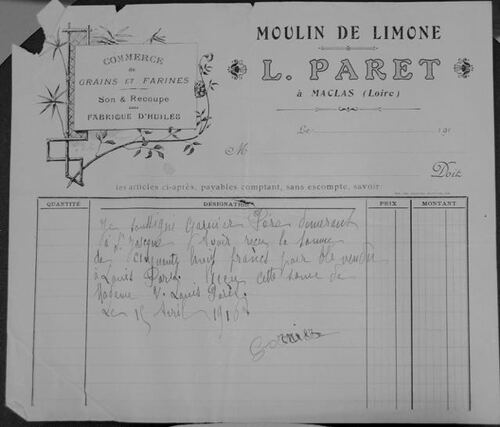 COMMERCE
de
GRAINS ET FARINES
Son & Recoupe
FABRIQUE D'HUILES
MOULIN DE LIMONE
L. PARET
à MACLAS (Loire)
Le 191
M
Doit
les articles ci-après, payables comptant, sans escompte, savoir:
QUANTITÉ DÉSIGNATION PRIX MONTANT
Je soussigné Garnier Père demeurant
à St avoir reçu la somme
de cinquante francs pour blé vendu
à Louis Paret reçu cette somme de
Madame Louis Paret
Le 15 Avril 191